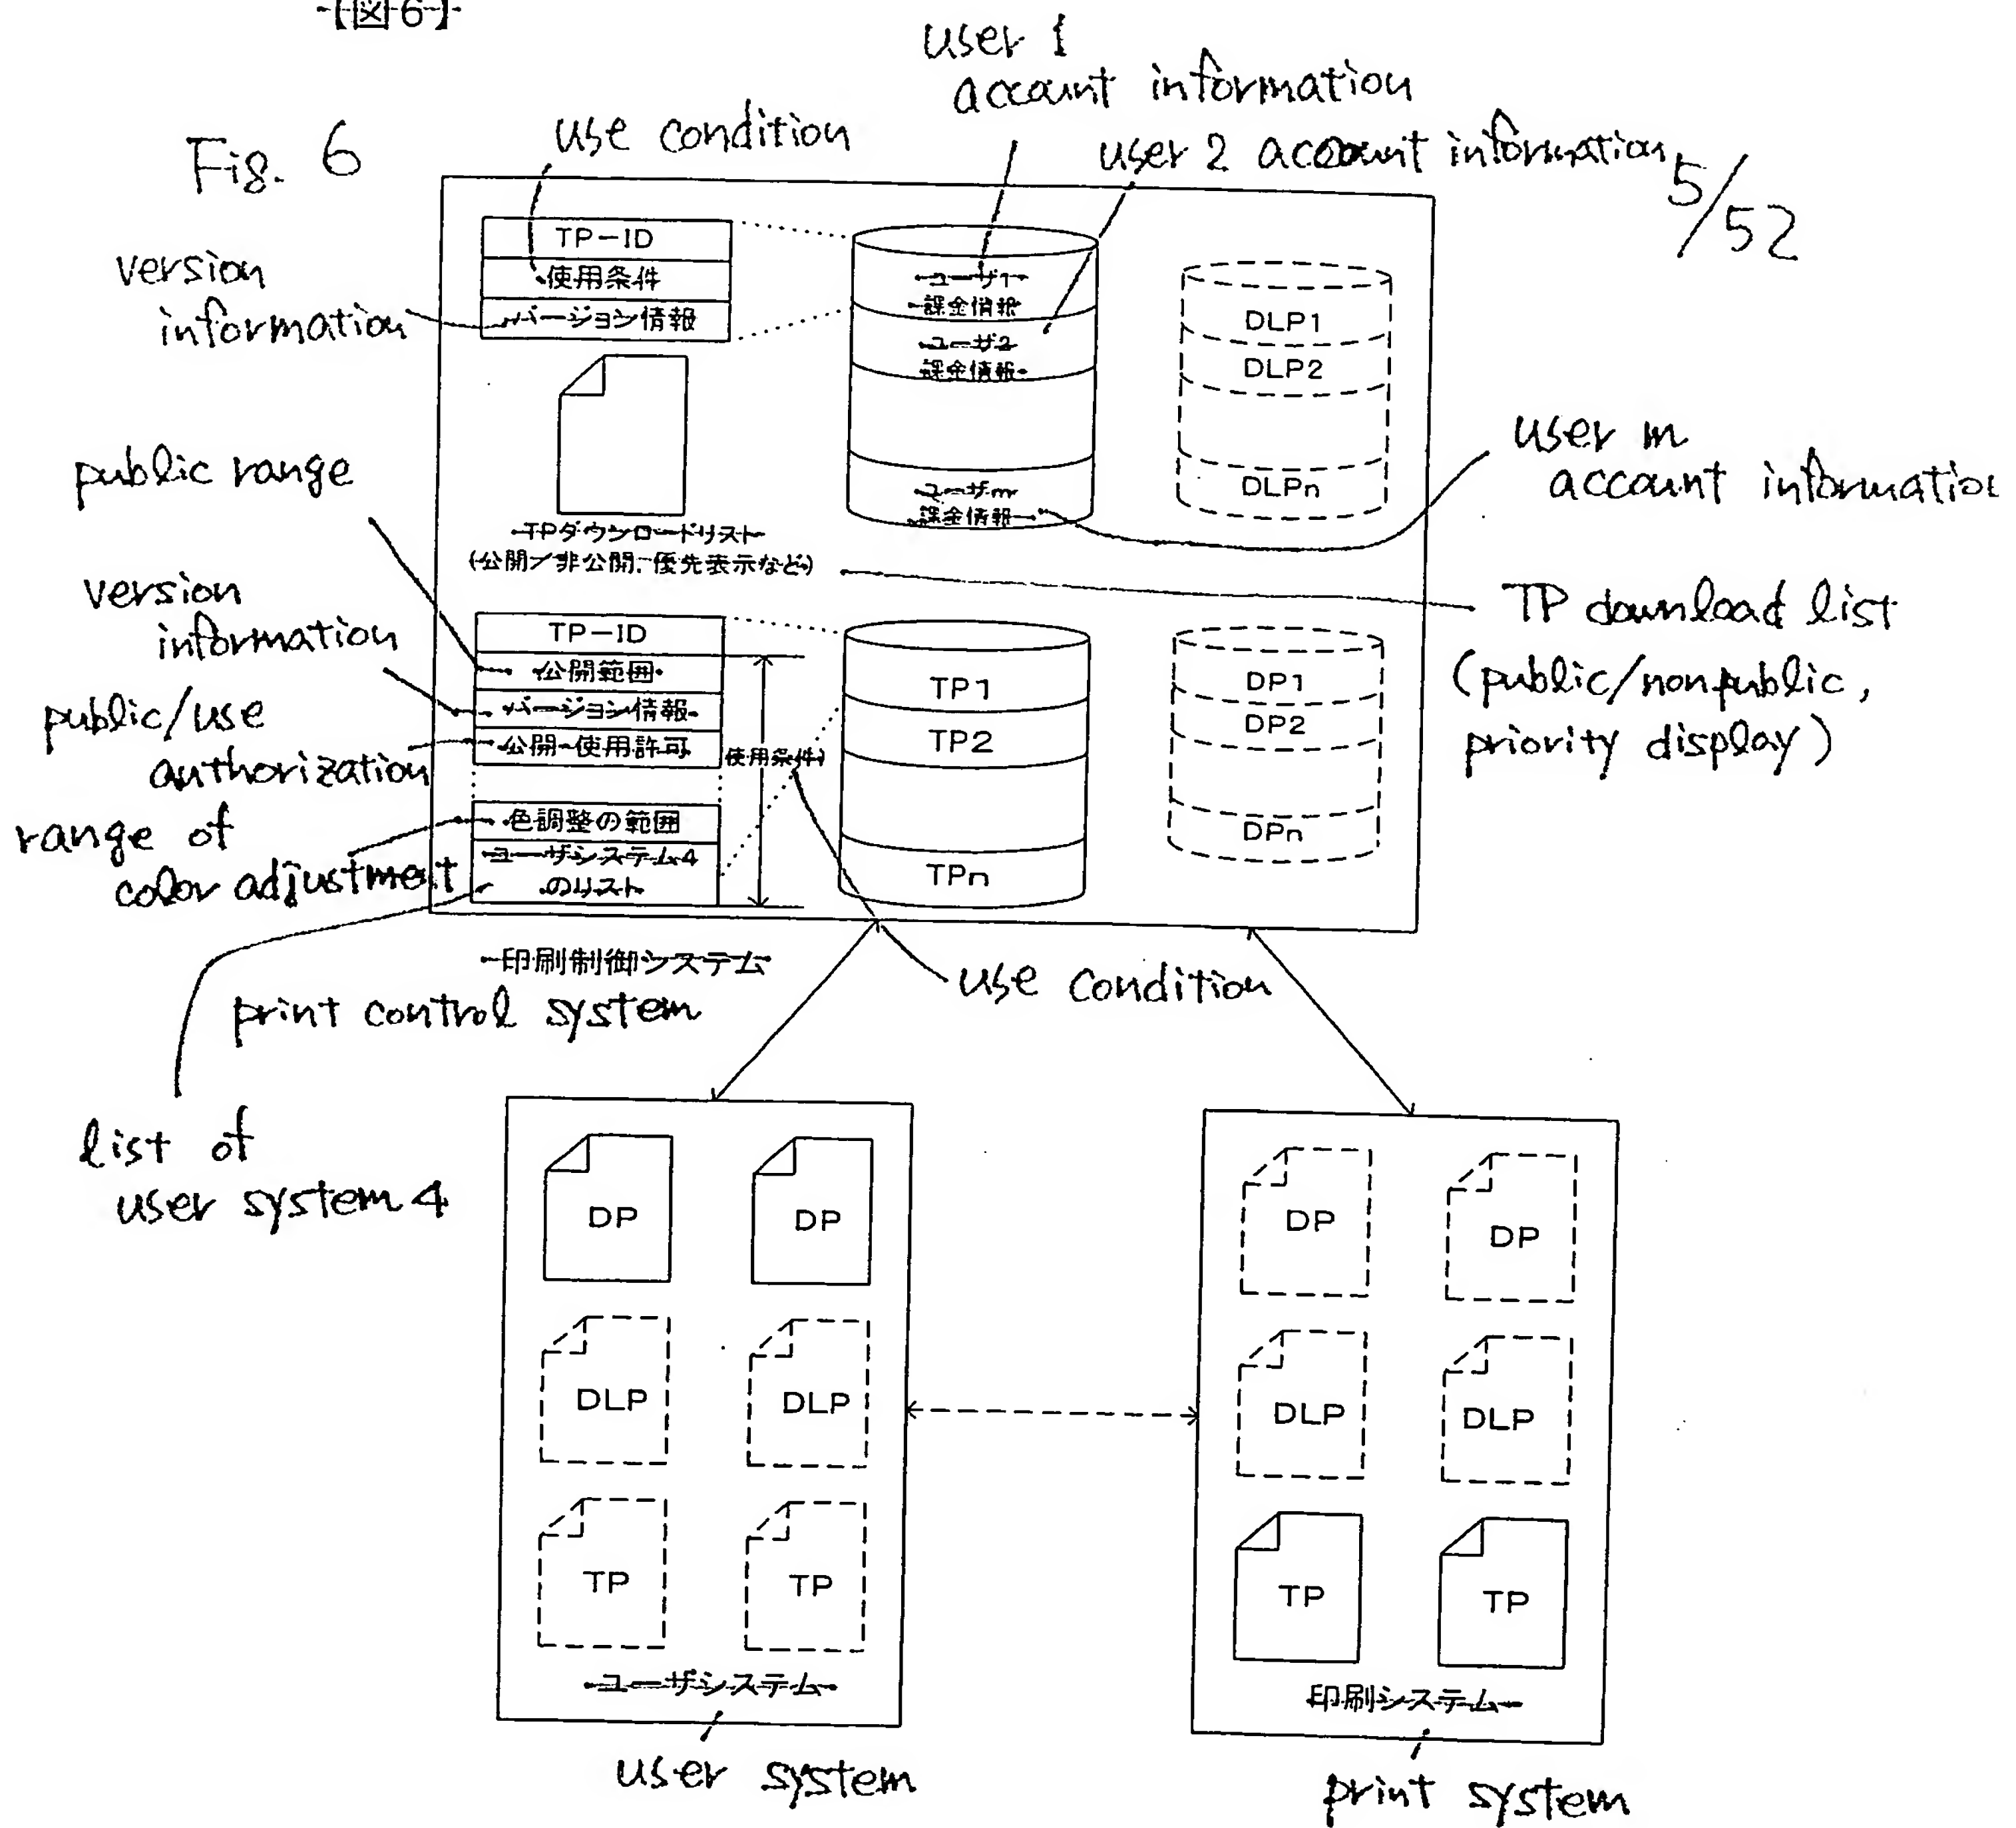 【図6】
Fig. 6
use condition
user 1
account information
user 2 account information
5/52
version
information
TP-ID
使用条件
バージョン情報
ユーザ1
課金情報
ユーザ2
課金情報
ユーザm
課金情報
DLP1
DLP2
DLPn
user m
account information
public range
TPダウンロードリスト
(公開/非公開、優先表示など)
TP download list
(public/nonpublic,
priority display)
version
information
public/use
authorization
range of
color adjustment
TP-ID
公開範囲
バージョン情報
公開・使用許可
使用条件
色調整の範囲
ユーザシステム4
のリスト
TP1
TP2
TPn
DP1
DP2
DPn
印刷制御システム
print control system
use condition
list of
user system 4
DP
DP
DLP
DLP
TP
TP
ユーザシステム
user system
DP
DP
DLP
DLP
TP
TP
印刷システム
print system